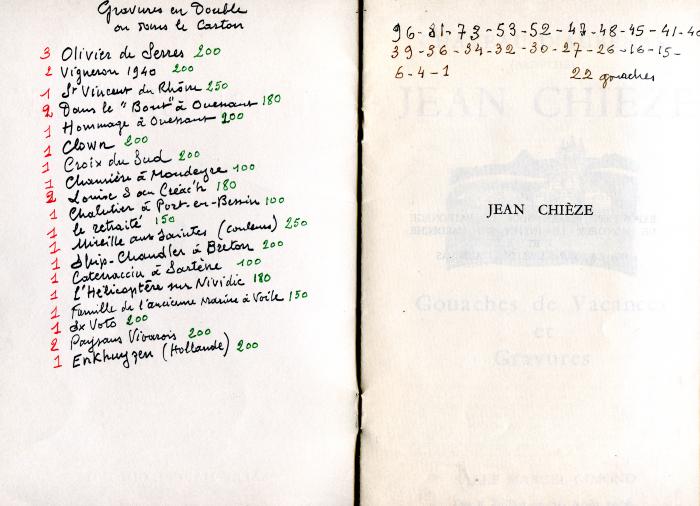 Gravures en Double
ou dans le Carton
3 Olivier de Serres 200
2 Vigneron 1940 200
1 St Vincent du Rhône 250
2 Dans le "Bout" à Ouessant 180
1 Hommage à Ouessant 200
1 Clown 200
1 Croix du Sud 200
1 Chaumière à Moudeyre 100
2 Louise S au Créac'h 180
1 Chalutier à Port-en-Bessin 100
1 le retraité 150
1 Mireille aux Saintes (couleurs) 250
1 Ship-Chandler à Breton 200
1 Catenacciu à Sartène 100
1 L'Hélicoptère sur Nividic 180
1 Famille de l'ancienne marine à Voile 150
1 Ex Voto 200
2 Paysans Vivarois 200
1 Enkhuyzen (Hollande) 200
96-81-73-53-52-47-48-45-41-40
39-36-34-32-30-27-26-16-15-
6-4-1 22 gouaches
JEAN CHIÈZE
JEAN CHIÈZE
Gouaches de Vacances
et
Gravures